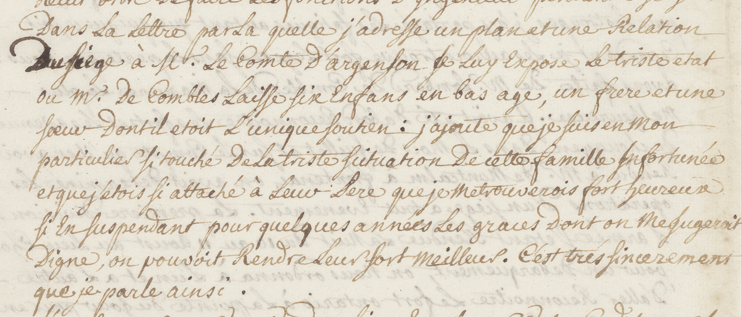 Dans La Lettre par La quelle j'adresse un plan et une Relation
Du siege à M. Le Comte D'argenson Je Luy Expose Le triste etat
ou Mr. De Combles Laisse six Enfans en bas age, un frere et une
sœur Dont il etoit L'unique soutien : j'ajoute que je suis en Mon
particulier si touché De La triste situation De cette famille Infortunée
et que j'etois si attaché à Leur Pere que je me trouverois fort heureux
si En suspendant pour quelques années Les graces Dont on Me Jugeroit
Digne, on pouvoit Rendre Leur sort Meilleur. C'est trés sincerement
que je parle ainsi.